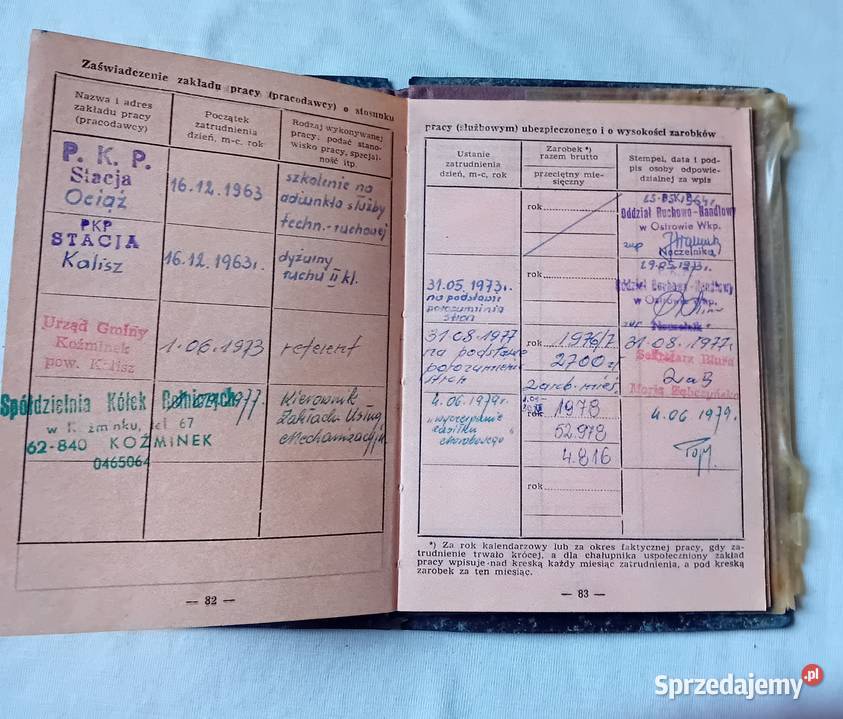 Zaświadczenie zakładu pracy (pracodawcy) o stosunku
Nazwa i adres
zakładu pracy
(pracodawcy)
Początek
zatrudnienia
dzień, m-c, rok
Rodzaj wykonywanej
pracy: podać stano-
wisko pracy, specjal-
ność itp.
P. K. P.
Stacja
Ociąż
16.12.1963
szkolenie na
adiunkta służby
techn.-ruchowej
PKP
STACJA
Kalisz
16.12.1963r.
dyżurny
ruchu II kl.
Urząd Gminy
Koźminek
pow. Kalisz
1.06.1973
referent
Spółdzielnia Kółek Rolniczych
w Koźminku, tel 67
62-840 KOŹMINEK
0465064
1977.
Kierownik
Zakładu Usług
Mechanizacyjn.
— 82 —
pracy (służbowym) ubezpieczonego i o wysokości zarobków
Ustanie
zatrudnienia
dzień, m-c, rok
Zarobek *)
razem brutto
przeciętny mie-
sięczny
Stempel, data i pod-
pis osoby odpowie-
dzialnej za wpis
rok
1964r.
Oddział Ruchowo-Handlowy
w Ostrowie Wkp.
zup
Naczelnika
31.05.1973r.
na podstawie
porozumienia
stron
rok
29.05.1973r.
Oddział Ruchowo-Handlowy
w Ostrowie Wkp.
zup
31.08.1977
na podstawie
porozumienia
stron
1976/7
2700
zarob. mies.
31.08.1977r.
Sekretarz Biura
4.06.1979r.
"wyczerpanie
zasiłku
chorobowego"
rok 1978
52.978
4.816
4.06.1979.
rok
*) Za rok kalendarzowy lub za okres faktycznej pracy, gdy za-
trudnienie trwało krócej, a dla chałupnika uspołeczniony zakład
pracy wpisuje nad kreską każdy miesiąc zatrudnienia, a pod kreską
zarobek za ten miesiąc.
— 83 —
Sprzedajemy.pl